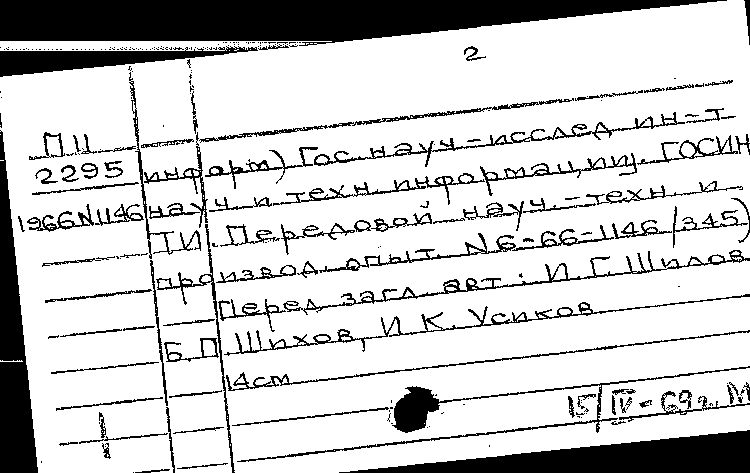 2
ПII
2295 информ) Гос. науч-исслед ин-т
1966 N1146 науч и техн информации. ГОСИН
ТИ. Передовой науч.-техн. и
производ. опыт. N6-66-1146/345)
Перед загл авт: И.Г. Шилов
Б.П. Шихов, И К. Усиков
14см
15/IV-69г. М